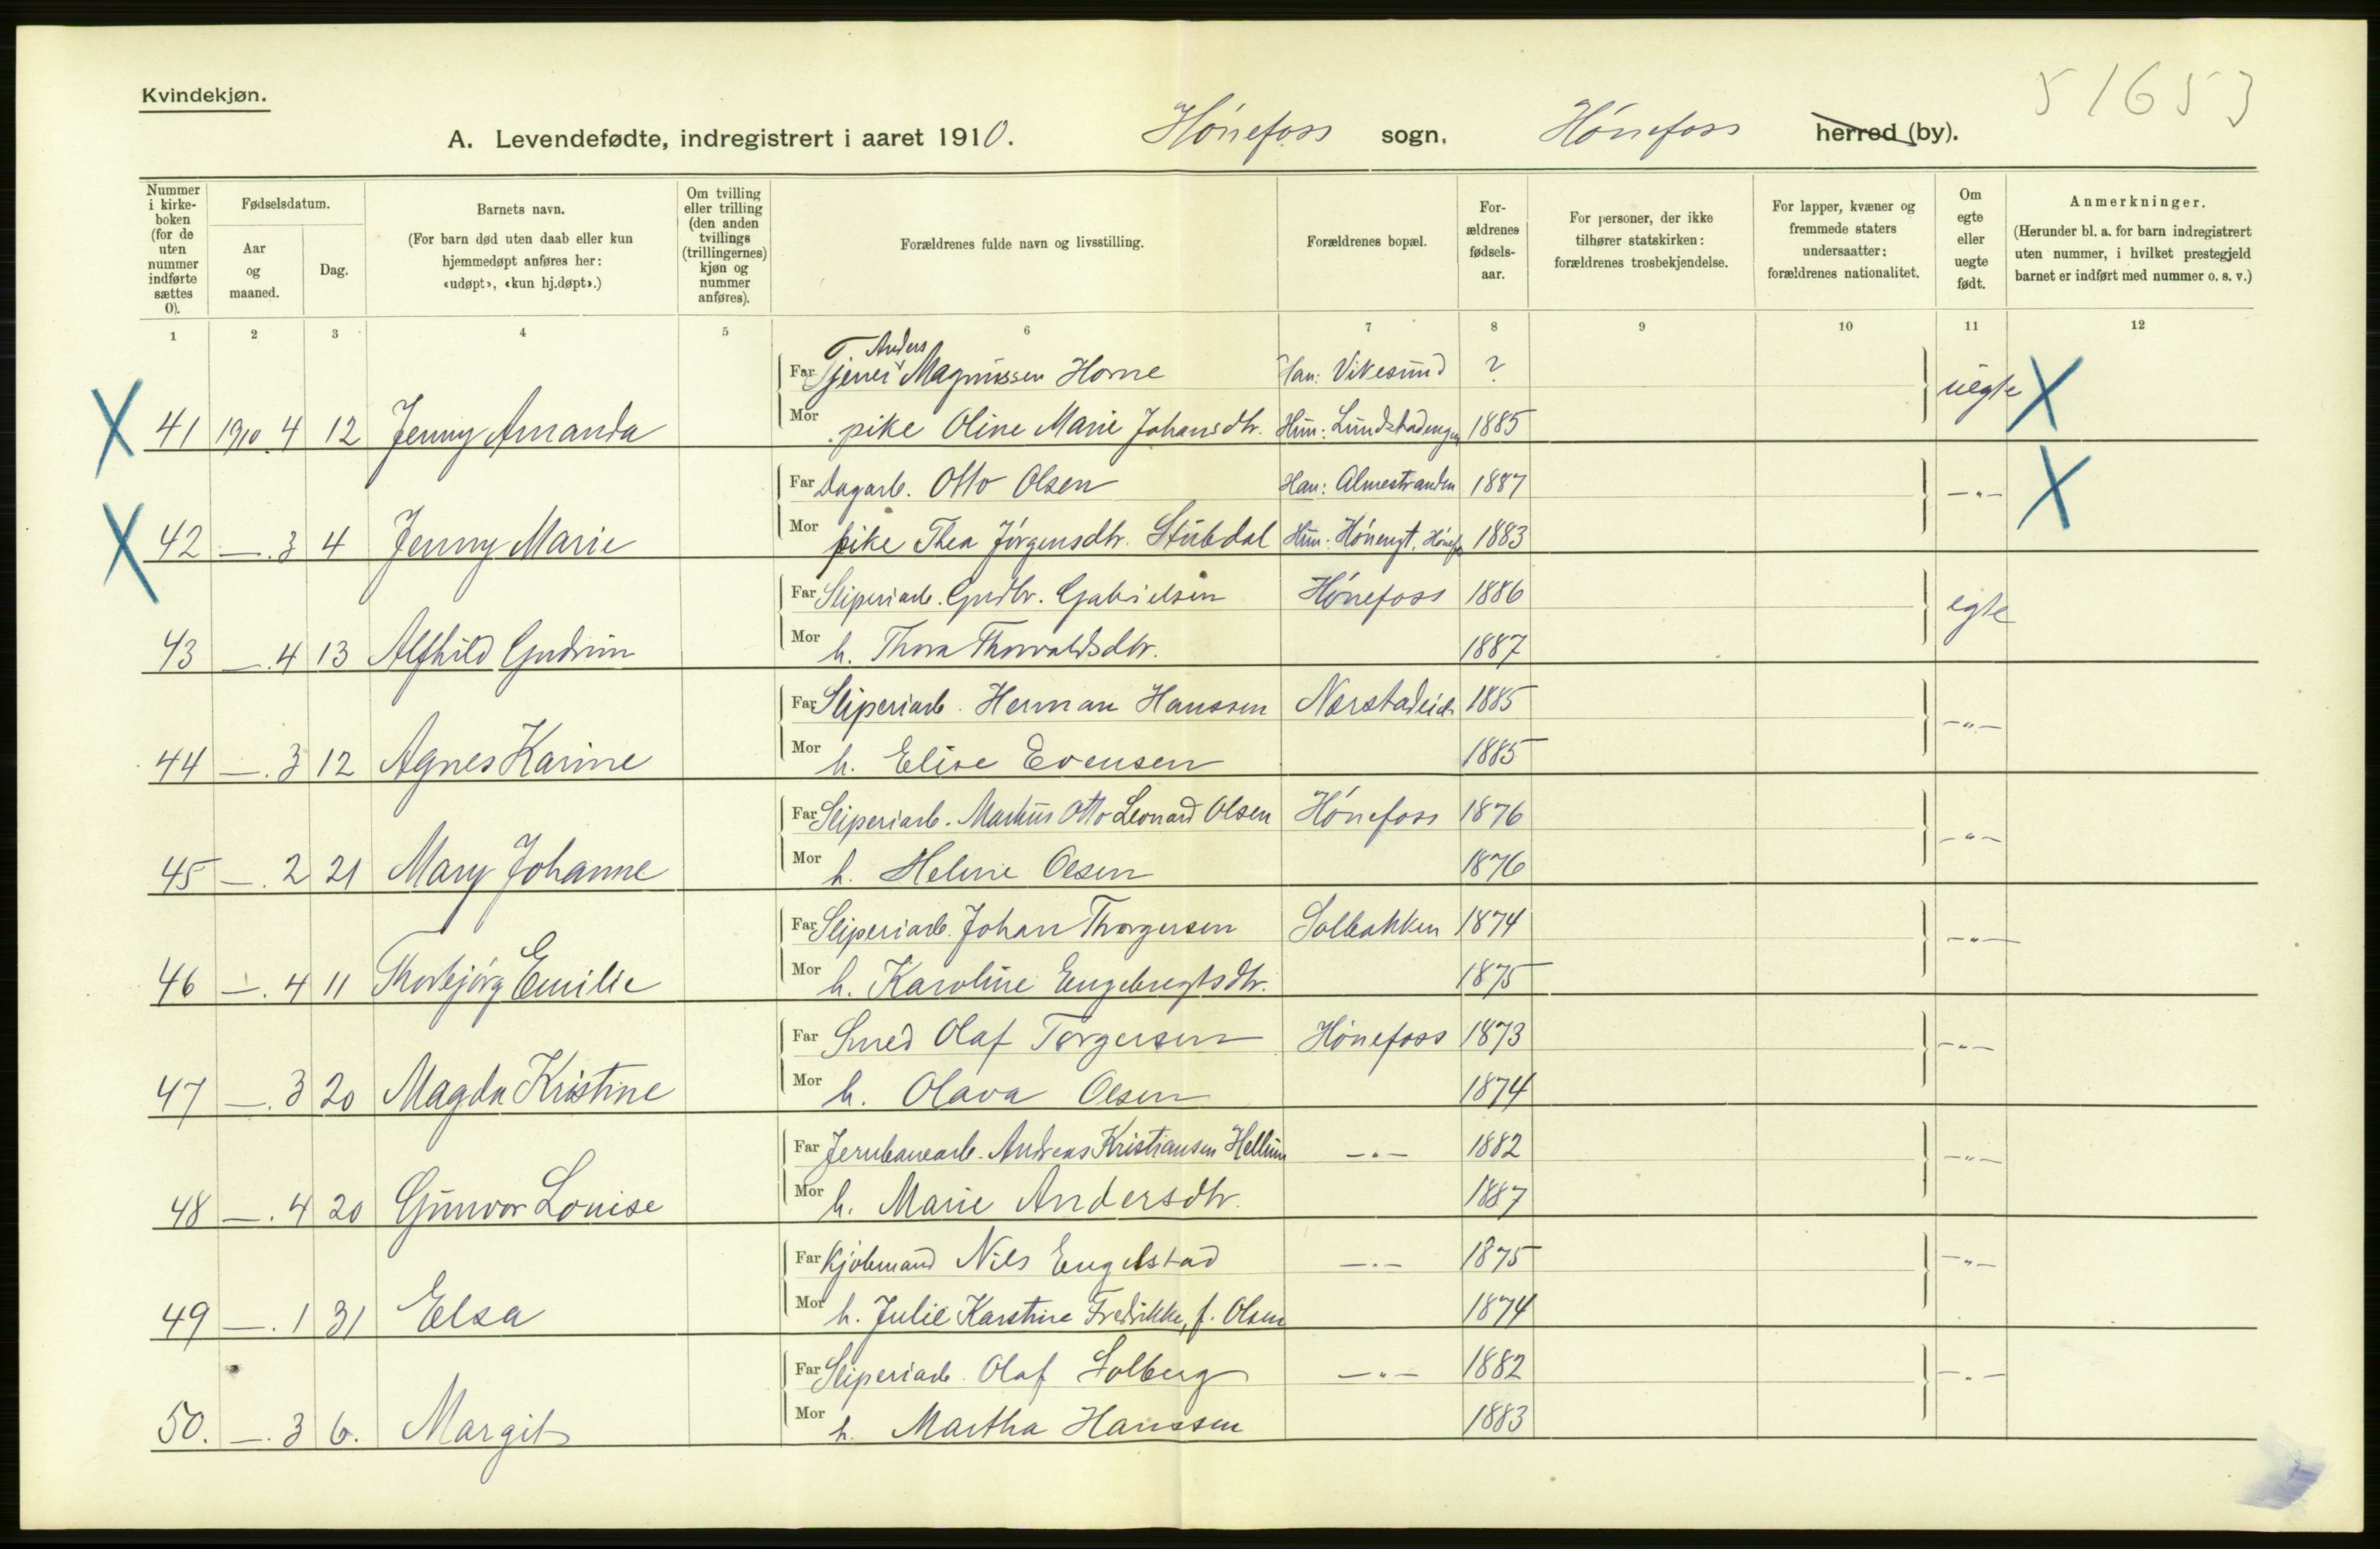 51653
Kvindekjøn.
A. Levendefødte, indregistrert i aaret 1910. Hønefoss sogn, Hønefoss herred (by).
Nummer i kirke-boken (for de uten nummer indførte sættes 0).
Fødselsdatum.
Aar og maaned.
Dag.
Barnets navn.
(For barn død uten daab eller kun hjemmedøpt anføres her: «udøpt», «kun hj.døpt».)
Om tvilling eller trilling (den anden tvillings (trillingernes) kjøn og nummer anføres).
Forældrenes fulde navn og livsstilling.
Forældrenes bopæl.
For-ældrenes fødsels-aar.
For personer, der ikke tilhører statskirken: forældrenes trosbekjendelse.
For lapper, kvæner og fremmede staters undersaatter: forældrenes nationalitet.
Om egte eller uegte født.
Anmerkninger.
(Herunder bl. a. for barn indregistrert uten nummer, i hvilket prestegjeld barnet er indført med nummer o. s. v.)
1 2 3 4 5 6 7 8 9 10 11 12
Anders
Far Tjener Magnussen Horne Han: Vikesund ? uegte X
X 41 1910. 4 12 Jenny Amanda Mor pike Oline Marie Johansdtr. Hun: 1885
Far Dagarb. Otto Olsen Han: Almestranden 1887 —"— X
X 42 —. 3 4 Jenny Marie Mor pike Thea Jørgensdtr. Stubdal Hun: Hønengt. Hønef. 1883
Far Sliperiarb. Gudbr. Gabrielsen Hønefoss 1886 egte
43 —. 4 13 Alfhild Gudrun Mor h. Thora Thorvaldsdtr. 1887
Far Sliperiarb. Herman Hanssen 1885 —"—
44 —. 3 12 Agnes Karine Mor h. Elise Evensen 1885
Far Sliperiarb. Markus Otto Leonard Olsen Hønefoss 1876 —"—
45 —. 2 21 Mary Johanne Mor h. Helene Olsen 1876
Far Sliperiarb. Johan Thorgersen Solbakken 1874 —"—
46 —. 4 11 Thorbjørg Emilie Mor h. Karoline Engebregtsdtr. 1875
Far Smed Olaf Torgersen Hønefoss 1873 —"—
47 —. 3 20 Magda Kristine Mor h. Olava Olsen 1874
Far Jernbanearb. Andreas Kristiansen Hellum —"— 1882 —"—
48 —. 4 20 Gunvor Louise Mor h. Marie Andersdtr. 1887
Far Kjøbmand Nils Engelstad —"— 1875 —"—
49 —. 1 31 Elsa Mor h. Julie Karstine Fredrikke, f. Olsen 1874
Far Sliperiarb. Olaf Solberg —"— 1882 —"—
50. —. 3 6. Margit Mor h. Martha Hanssen 1883